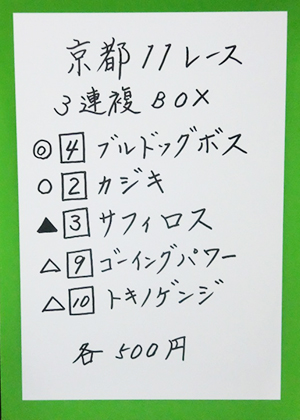 京都11レース
3連複BOX
◎4ブルドッグボス
○2カジキ
▲3サフィロス
△9ゴーイングパワー
△10トキノゲンジ
各500円